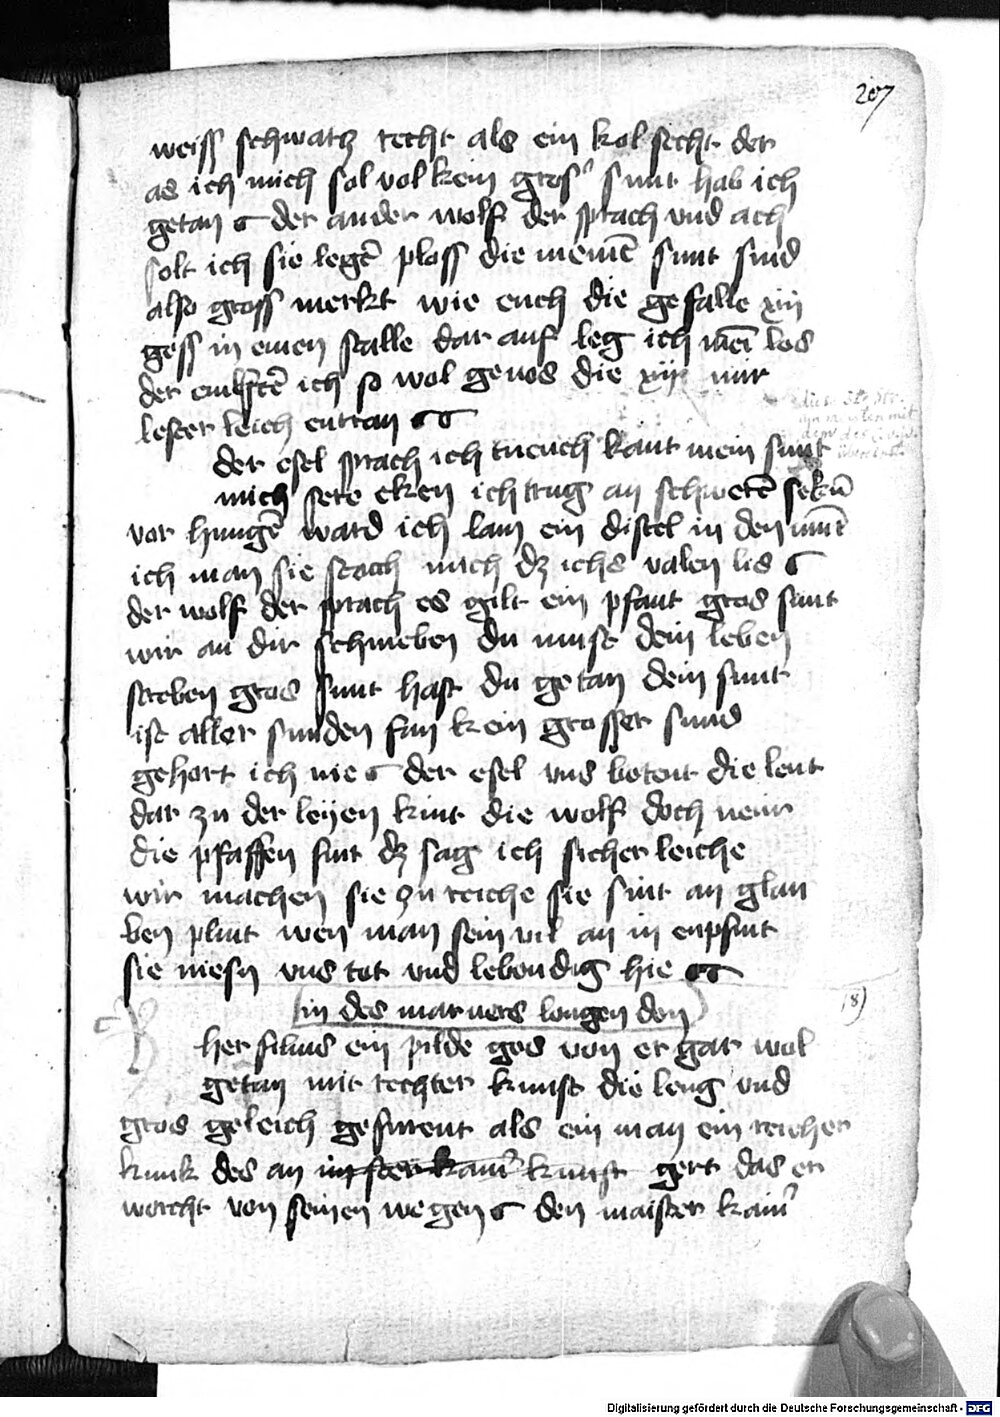 207
weiss schwatz recht als ein kol secht der
as ich mich sol vol kein gros sunt hab ich
getan der ander wolf der sprach vnd ach
solt ich sie legē ploss die meinē sunt sind
also gross merkt wie euch die gefalle xiij
gess in einen stalle dar auf leg ich mei los
der ich so wol genos die xiij mir
lester leich entran
der esel sprach ich tueuch kant mein sunt
mich sere eken ich trug an schwerē sekū
vor hungē ward ich lam ein distel in den
ich man sie stach mich dz ichs valen lis
der wolf der sprach es gilt ein pfant gros sunt
wir an dir schmeben du must dein leben
streben gros sunt hast du getan dein sunt
ist aller sunden fun kein grosser sund
gehort ich nie der esel vns botent die leut
dar zu der leyen kint die wolf doch nem
die pfaffen sint dz sag ich sicherleiche
wir machen sie zu reiche sie sint an glau
ben plint wen man sein vil an in enpfint
sie niesn vns tot vnd lebendig hie
in des marners langen don
18)
her filius ein pilde gos von er gar wol
getan mit rechter kunst die leng vnd
gros geleich gesinent als ein man ein reicher
kunk des an kunst gert das er
worcht von seinen wegen den maister kam
Digitalisierung gefördert durch die Deutsche Forschungsgemeinschaft - DFG